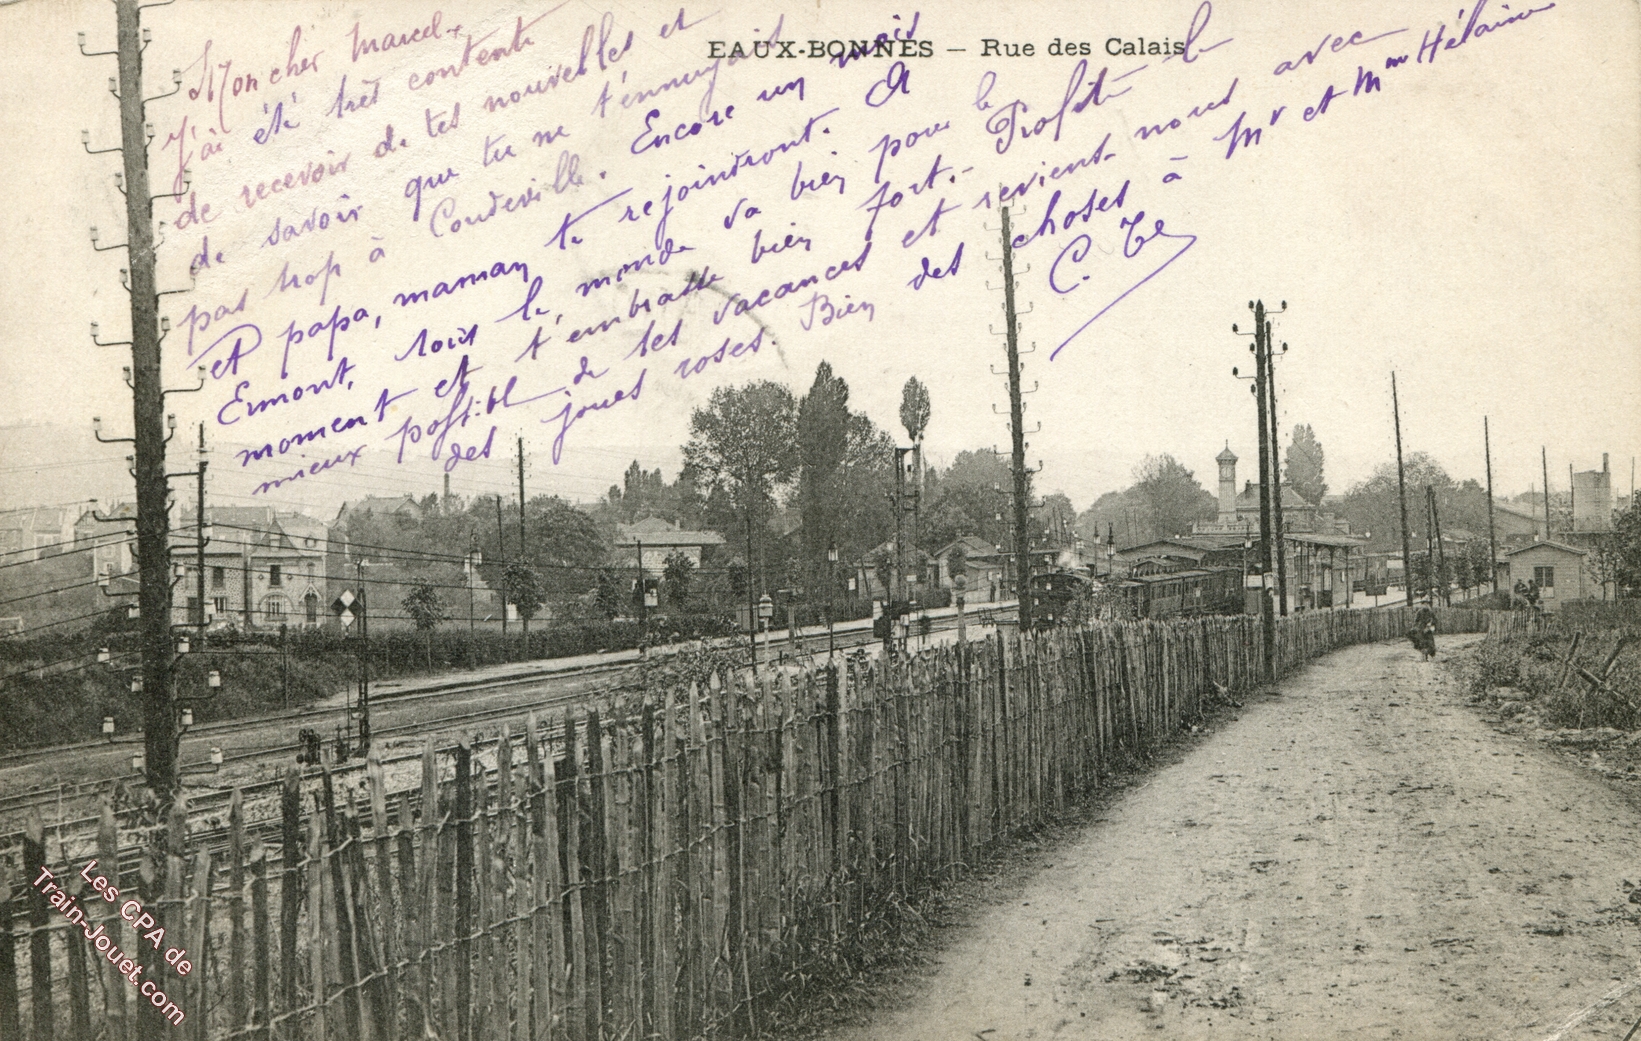 EAUX-BONNES – Rue des Calais
Mon cher Marcel,
J'ai été très contente
de recevoir de tes nouvelles et
de savoir que tu ne t'ennuyais
pas trop à Coudeville. Encore un mois
et papa, maman te rejoindront. A
Ermont, tout le monde va bien pour le
moment et t'embrasse bien fort. - Profite le
mieux possible de tes vacances et revient-nous avec
des joues roses. Bien des choses à Mr et Mme Hélaine
C.
Les CPA de
Train-Jouet.com